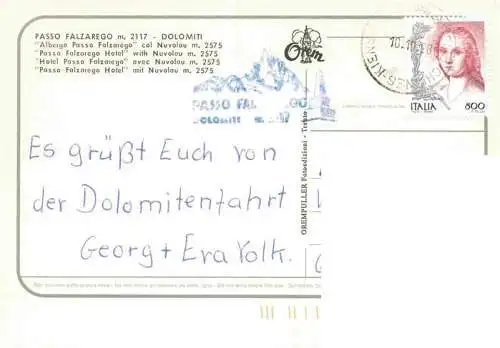 PASSO FALZAREGO m. 2117 - DOLOMITI
"Albergo Passo Falzarego" col Nuvolau m. 2575
"Passo Falzarego Hotel" with Nuvolau m. 2575
"Hotel Passo Falzarego" avec Nuvolau m. 2575
"Passo Falzarego Hotel" mit Nuvolau m. 2575
PASSO FAL
DOLOMITI m.
OREMPULLER Fotoedizioni - Trento
ITALIA 800
Es grüßt Euch von
der Dolomitenfahrt
Georg + Eva Volk.